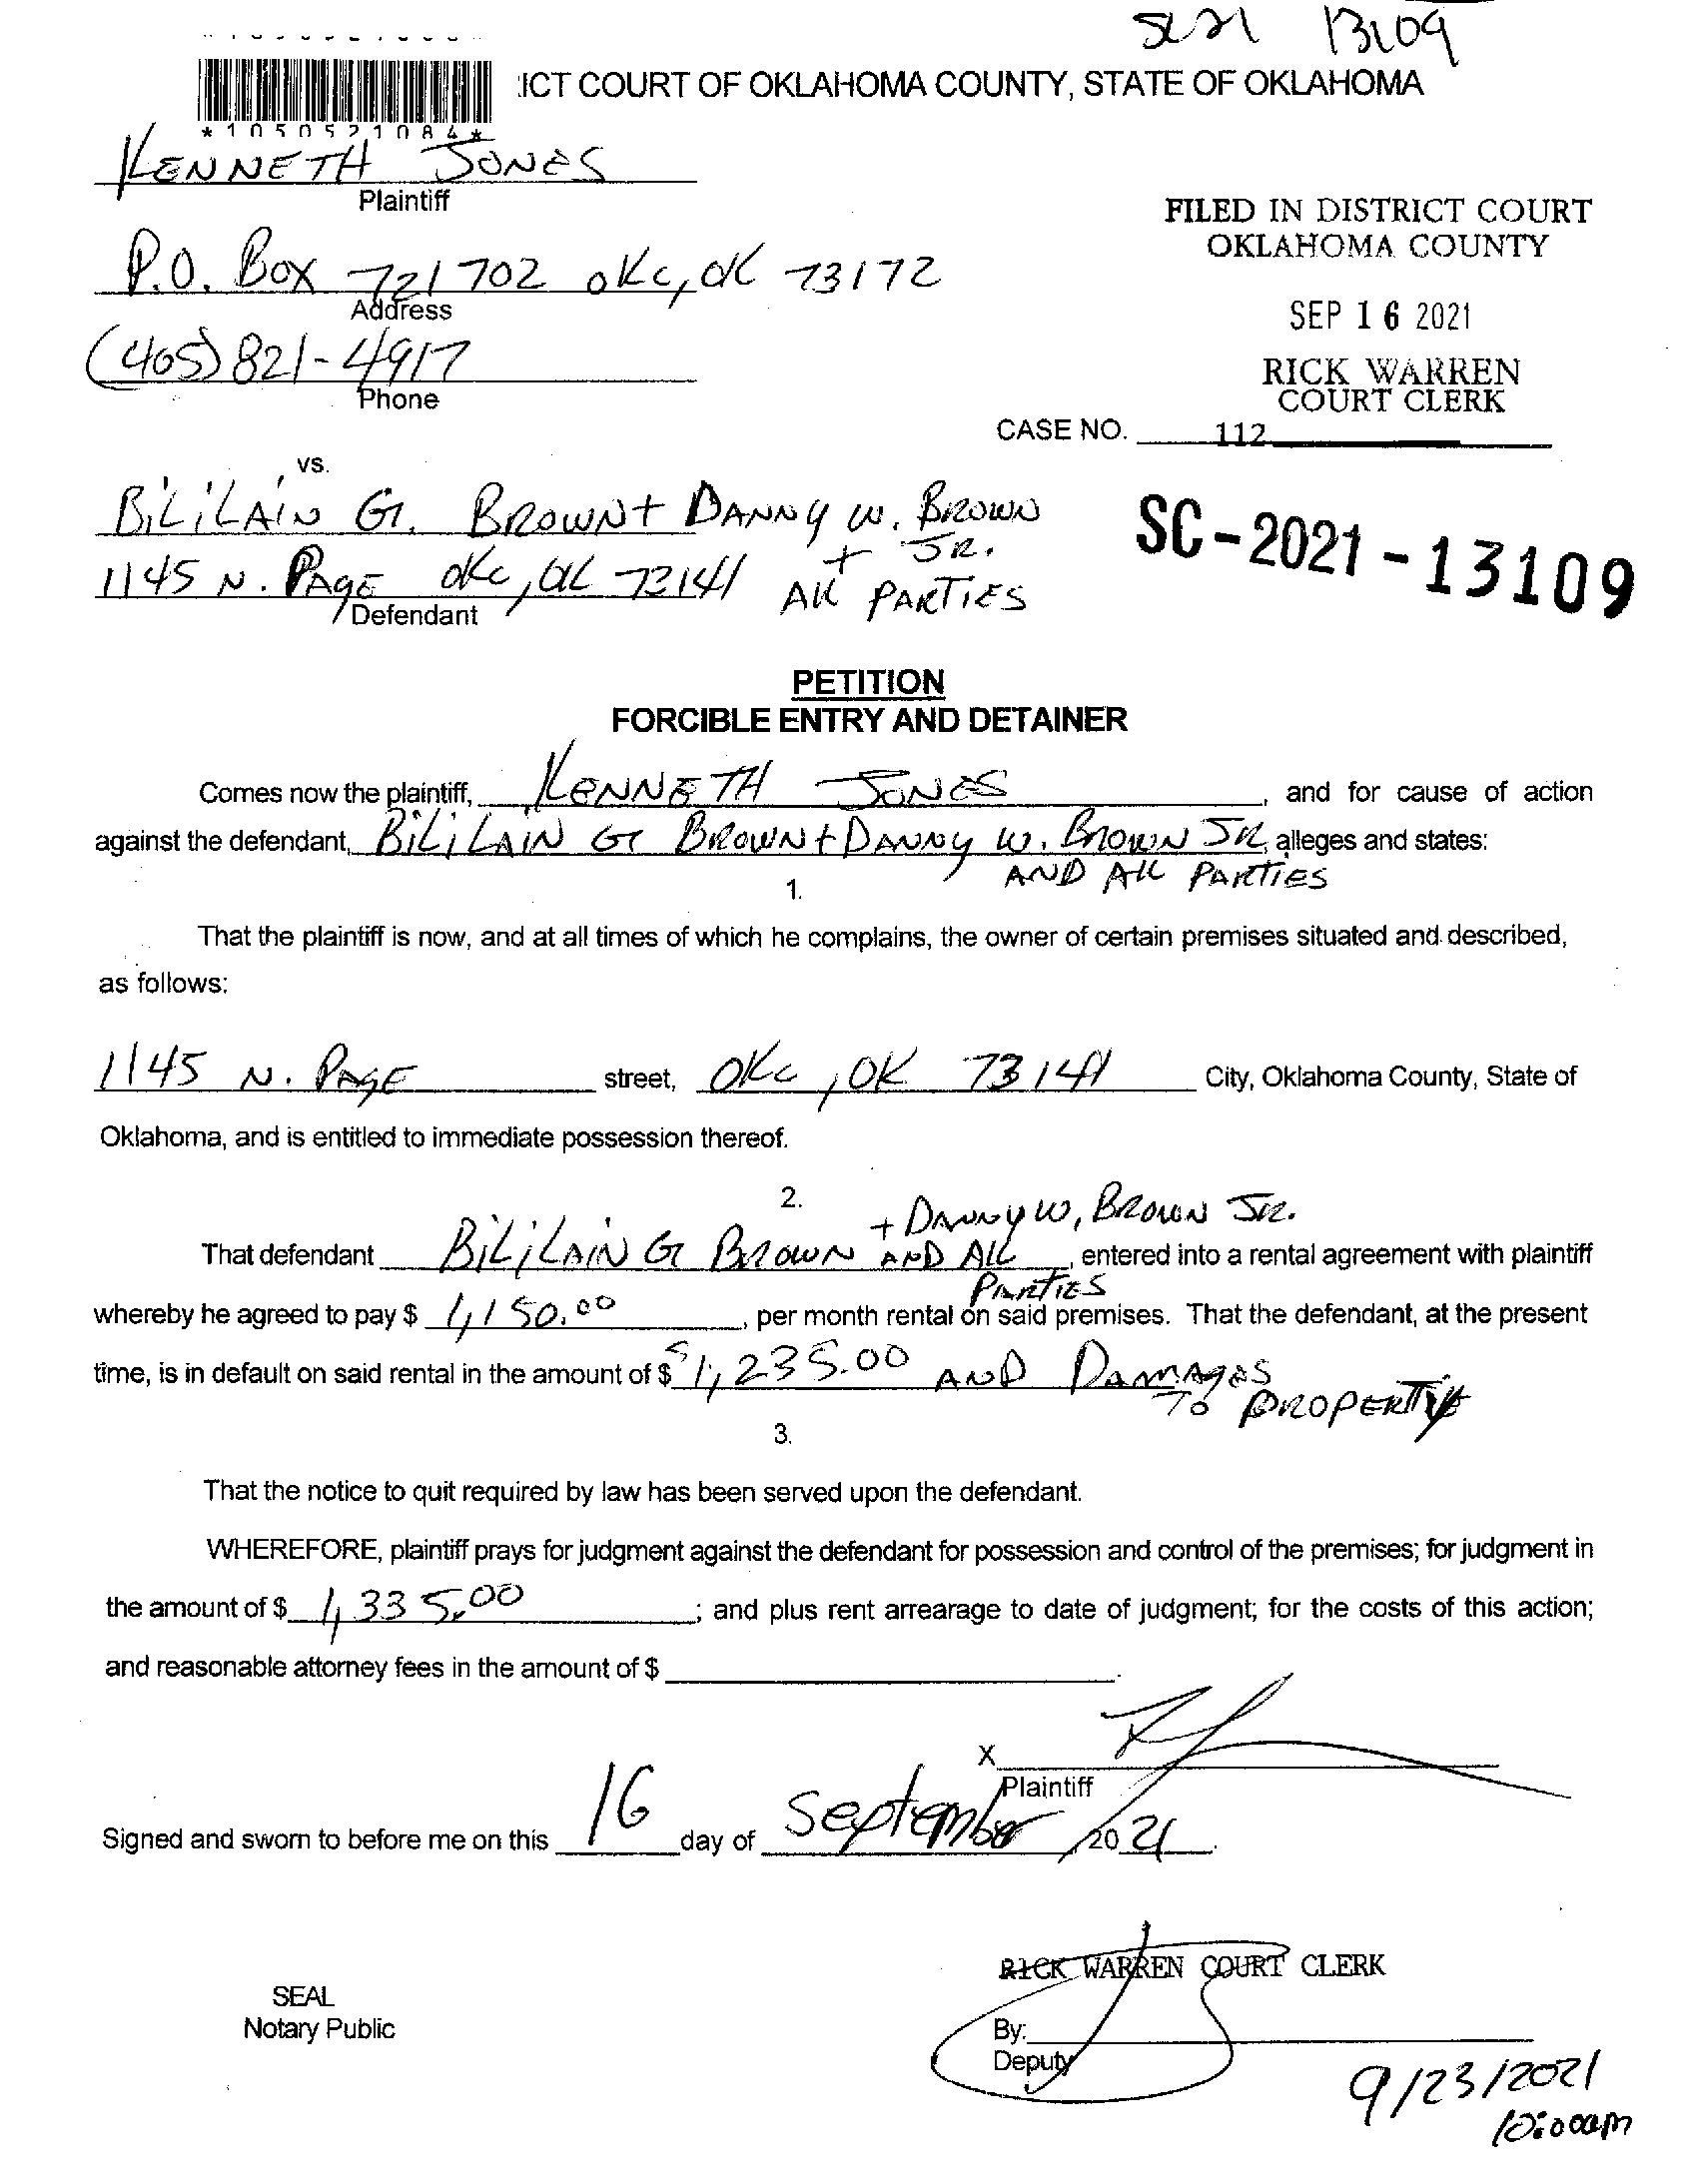 SC21 13109
ICT COURT OF OKLAHOMA COUNTY, STATE OF OKLAHOMA
*1050521084*
KENNETH JONES
Plaintiff
FILED IN DISTRICT COURT
OKLAHOMA COUNTY
P.O. Box 721702 OKC, OK 73172
Address
SEP 16 2021
(405) 821-4917
Phone
RICK WARREN
COURT CLERK
CASE NO.
112
vs.
BiLiLAiN G. BROWN + DANNY W. BROWN JR.
SC-2021-13109
1145 N. PAGE OKC, OK 73141 + All PARTiES
Defendant
PETITION
FORCIBLE ENTRY AND DETAINER
Comes now the plaintiff, KENNETH JONES, and for cause of action
against the defendant, BiLiLAiN G BROWN + DANNY W. BROWN JR, alleges and states:
AND All PARTiES
1.
That the plaintiff is now, and at all times of which he complains, the owner of certain premises situated and described,
as follows:
1145 N. PAGE street, OKC, OK 73141 City, Oklahoma County, State of
Oklahoma, and is entitled to immediate possession thereof.
2.
+ DANNY W, BROWN JR.
That defendant BiLiLAiN G BROWN AND All PARTiES, entered into a rental agreement with plaintiff
whereby he agreed to pay $ 1,150.00, per month rental on said premises. That the defendant, at the present
time, is in default on said rental in the amount of $ $1,235.00 AND DAMAGES
TO PROPERTY
3.
That the notice to quit required by law has been served upon the defendant.
WHEREFORE, plaintiff prays for judgment against the defendant for possession and control of the premises; for judgment in
the amount of $ 1,335.00; and plus rent arrearage to date of judgment; for the costs of this action;
and reasonable attorney fees in the amount of $ .
X
Plaintiff
Signed and sworn to before me on this 16 day of September, 2021.
RICK WARREN COURT CLERK
SEAL
Notary Public
By:
Deputy
9/23/2021
10:00am